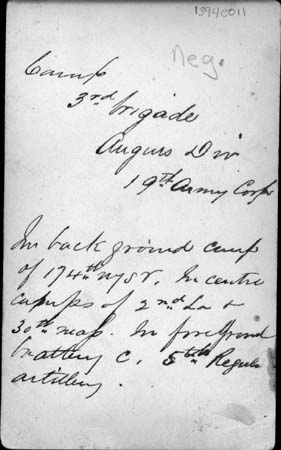 13940011
Neg.
Camp
3rd brigade
Augurs Div
19th Army Corps
In back ground camp
of 174th NYSV. In centre
camps of 2nd La &
30th Mass. In foreground
battery C. 5th Regular
artillery.